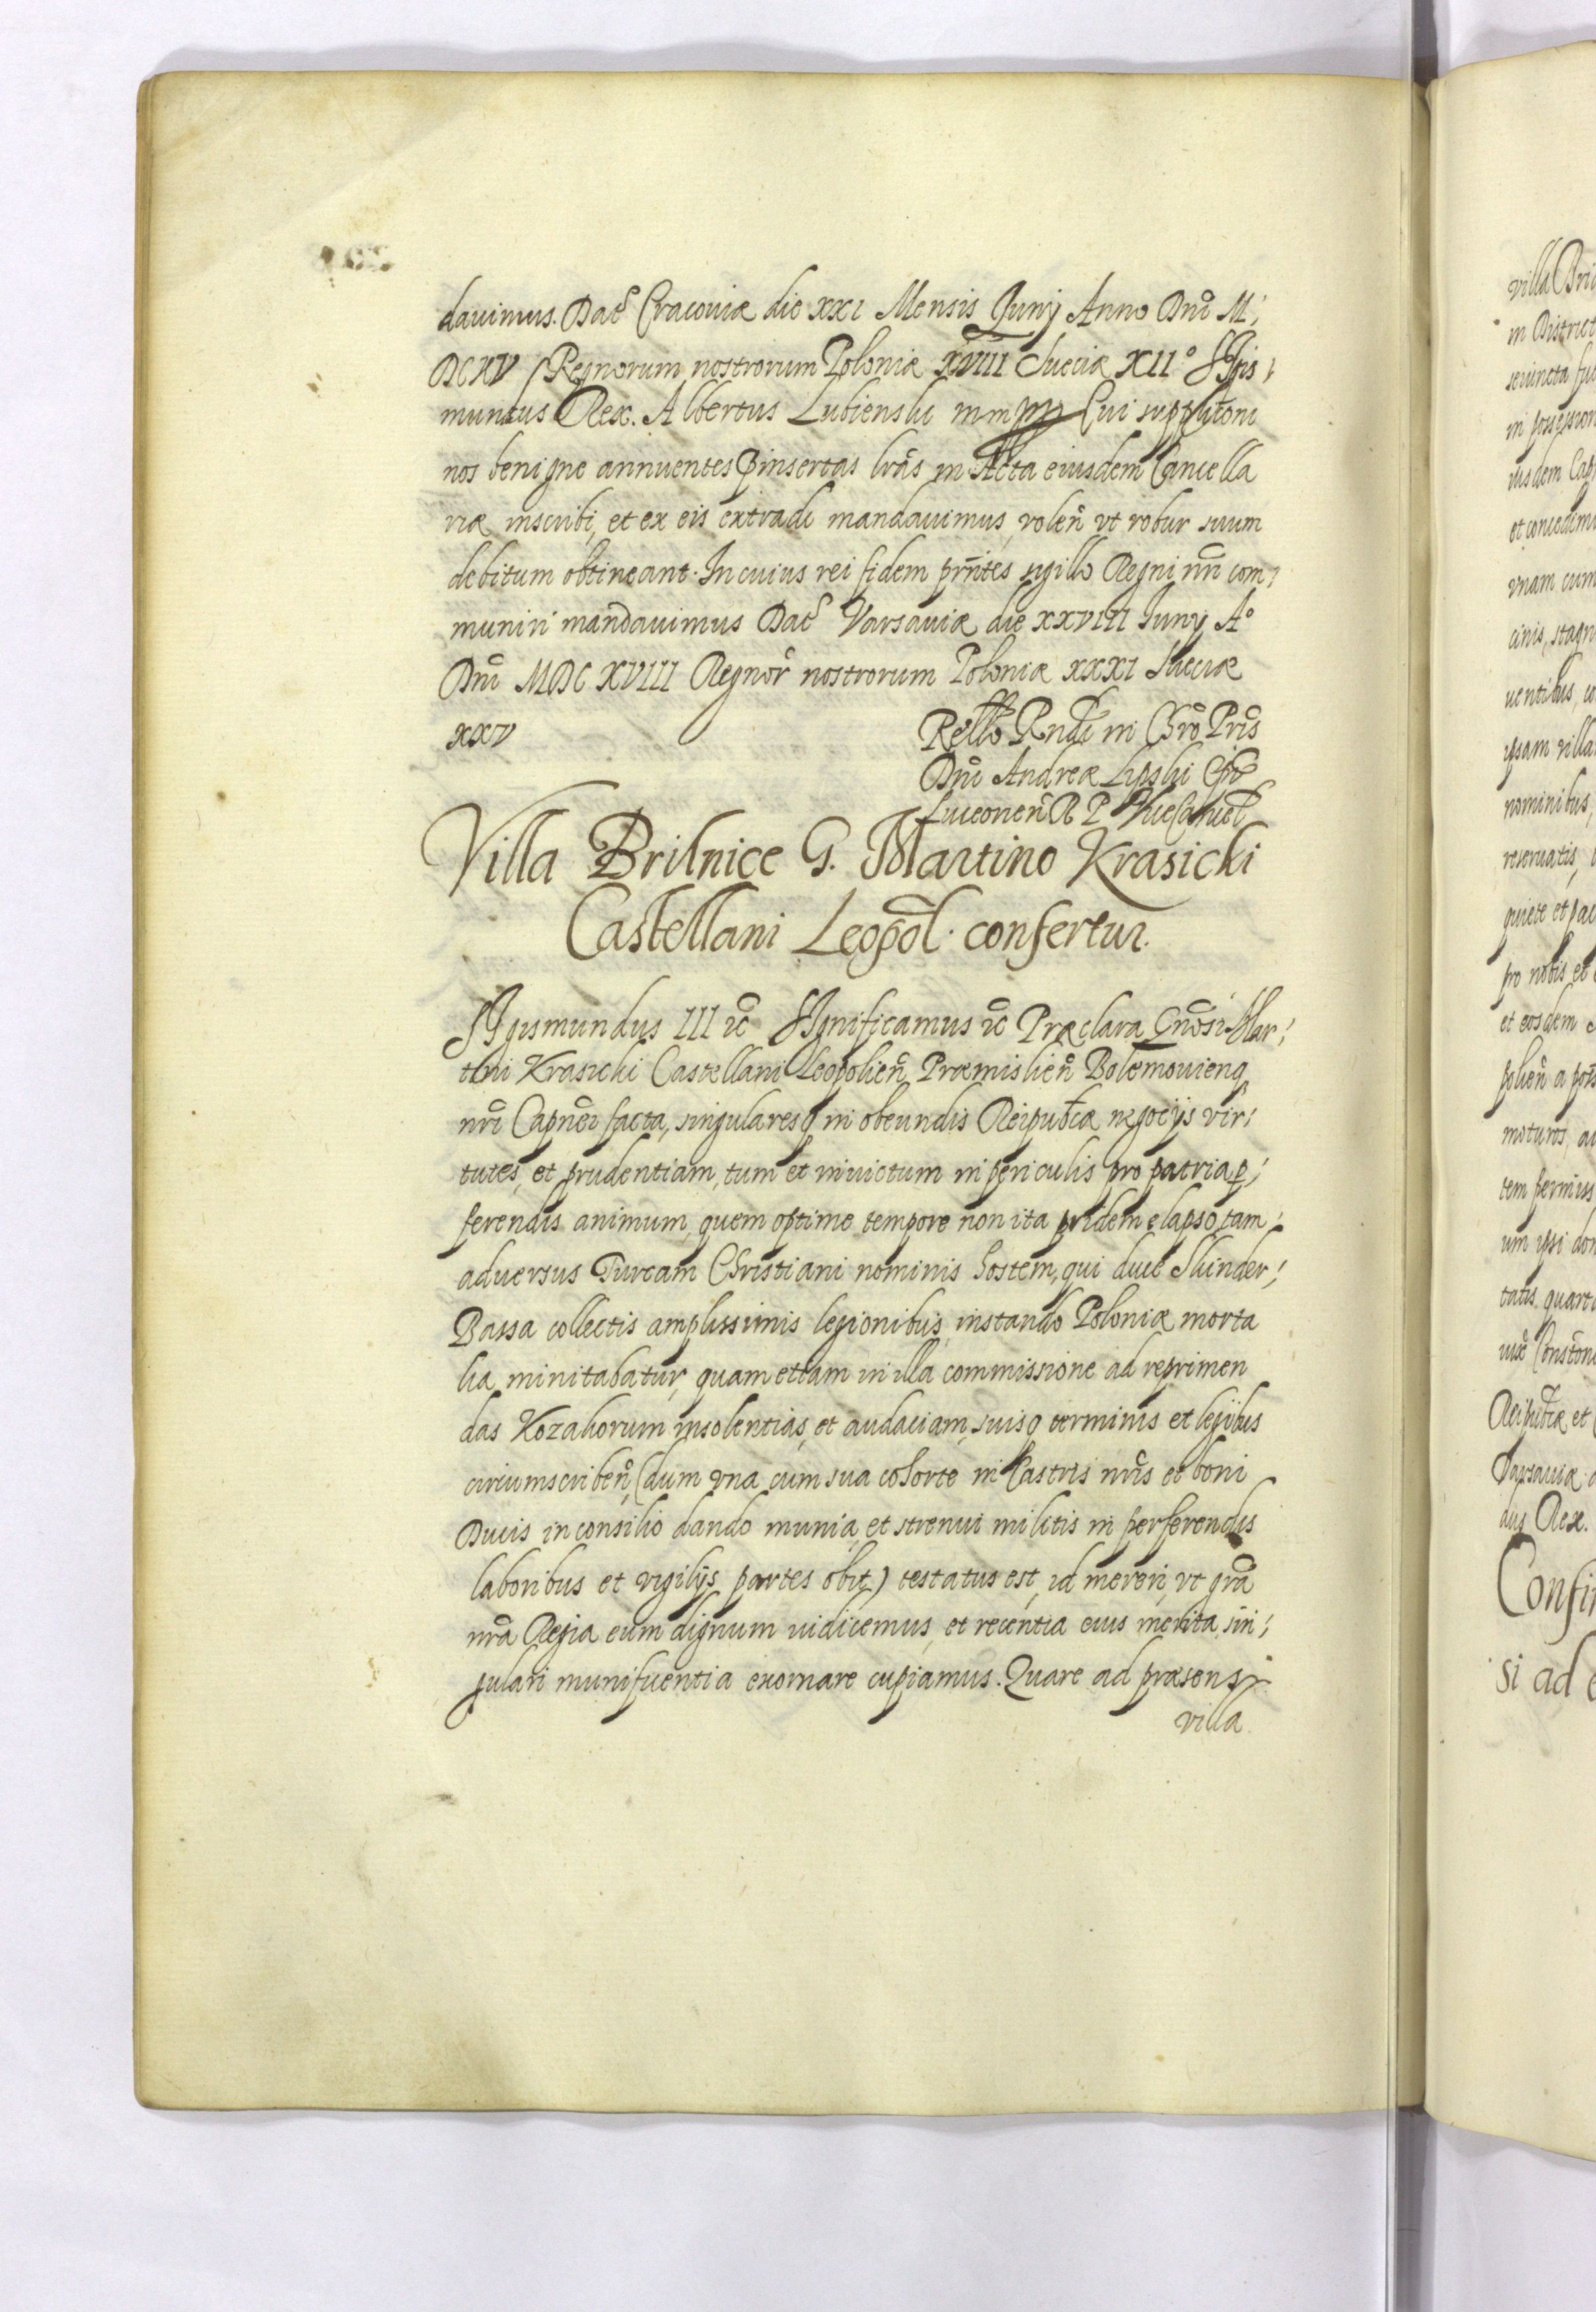 dauimus. Datt Cracouiæ die XXI Mensis Junij Anno Dni M;
DCXV Regnorum nostrorum Poloniæ XXVIII Sueciæ XII° Sigis;
mundus Rex. Albertus Lubienski mmpp Cui supplitoni
nos benigne annuentes pinsertas lrãs in Acta eiusdem Cancella
riæ inscribi, et ex eis extradi mandauimus, volen vt robur suum
debitum obtineant. In cuius rei fidem prñtes sigillo Regni nri com;
muniri mandauimus Datt Varsauiæ die XXVIII Iunij A°
Dni MDCXVIII Regnor nostrorum Poloniæ XXXI Sueciæ
XXV
Rello Rndi in Chro Pris
Dni Andreæ Lipski Epi
Luceorien R P Vicecancell
Villa Brilnice G. Martino Krasicki
Castellani Leopol. confertur.
Sigismundus III ic Significamus ic Præclara Gnosi Mar;
tini Krasicki Castellani Leopolien, Præmislien Bolemouienq
nri Capnei facta, singularesq in obeundis Reipublcæ negocijs vir;
tutes, et prudentiam, tum et inuictum in periculis pro patria p;
ferendis animum, quem optime tempore non ita pridem elapso, tam
aduersus Turcam Christiani nominis hostem, qui duce Skinder;
Bassa collectis amplissimis legionibus, instando Poloniæ morta
lia minitabatur, quam etiam in illa commissione ad reprimen
das Kozakorum insolentias, et audaciam, suisq terminis et legibus
circumscriben, (dum vna cum sua cohorte in Castris nris et boni
Ducis in consilio dando munia, et strenui militis in perferendis
laboribus et vigilijs partes obit) testatus est, id mereri, vt grã
nrã Regia eum dignum iudicemus, et recentia eius merita, sin;
gulari munificentia exornare cupiamus. Quare ad præsens
villa